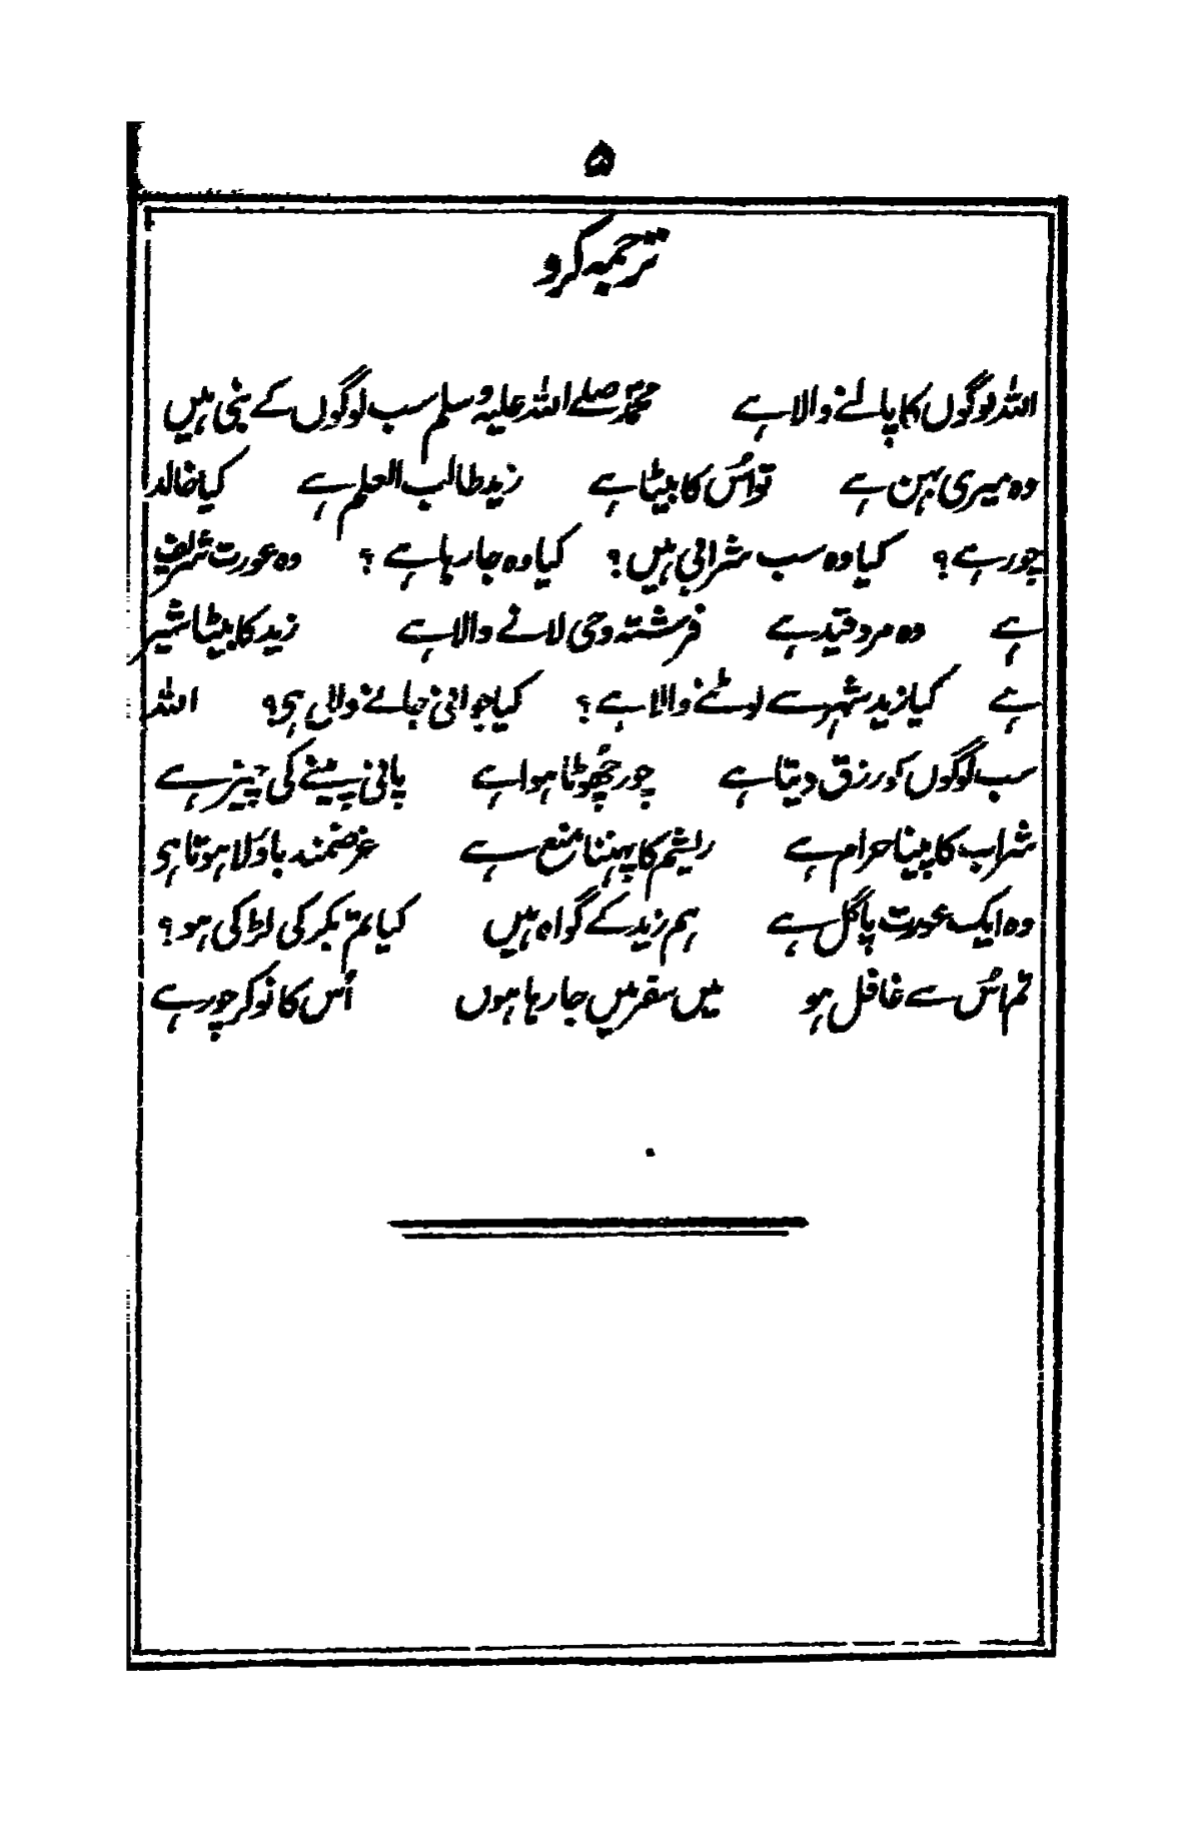 ۵
ترجمہ کرو
اللہ لوگوں کا پالنے والا ہے محمد صلے اللہ علیہ وسلم سب لوگوں کے نبی ہیں
وہ میری بہن ہے تو اُس کا بیٹا ہے زید طالب العلم ہے کیا خالد
چور ہے؟ کیا وہ سب شرابی ہیں؟ کیا وہ جا رہا ہے؟ وہ عورت شریف
ہے وہ مرد قید ہے فرشتہ وحی لانے والا ہے زید کا بیٹا شیر
ہے کیا زید شہر سے لوٹنے والا ہے؟ کیا جوانی جانے والی ہی؟ اللہ
سب لوگوں کو رزق دیتا ہے چور چھوٹا ہوا ہے پانی پینے کی چیز ہے
شراب کا پینا حرام ہے ریشم کا پہننا منع ہے غرضمند باؤلا ہوتا ہی
وہ ایک عورت پاگل ہے ہم زید کے گواہ ہیں کیا تم بکر کی لڑکی ہو؟
تم اُس سے غافل ہو میں سفر میں جا رہا ہوں اُس کا نوکر چور ہے